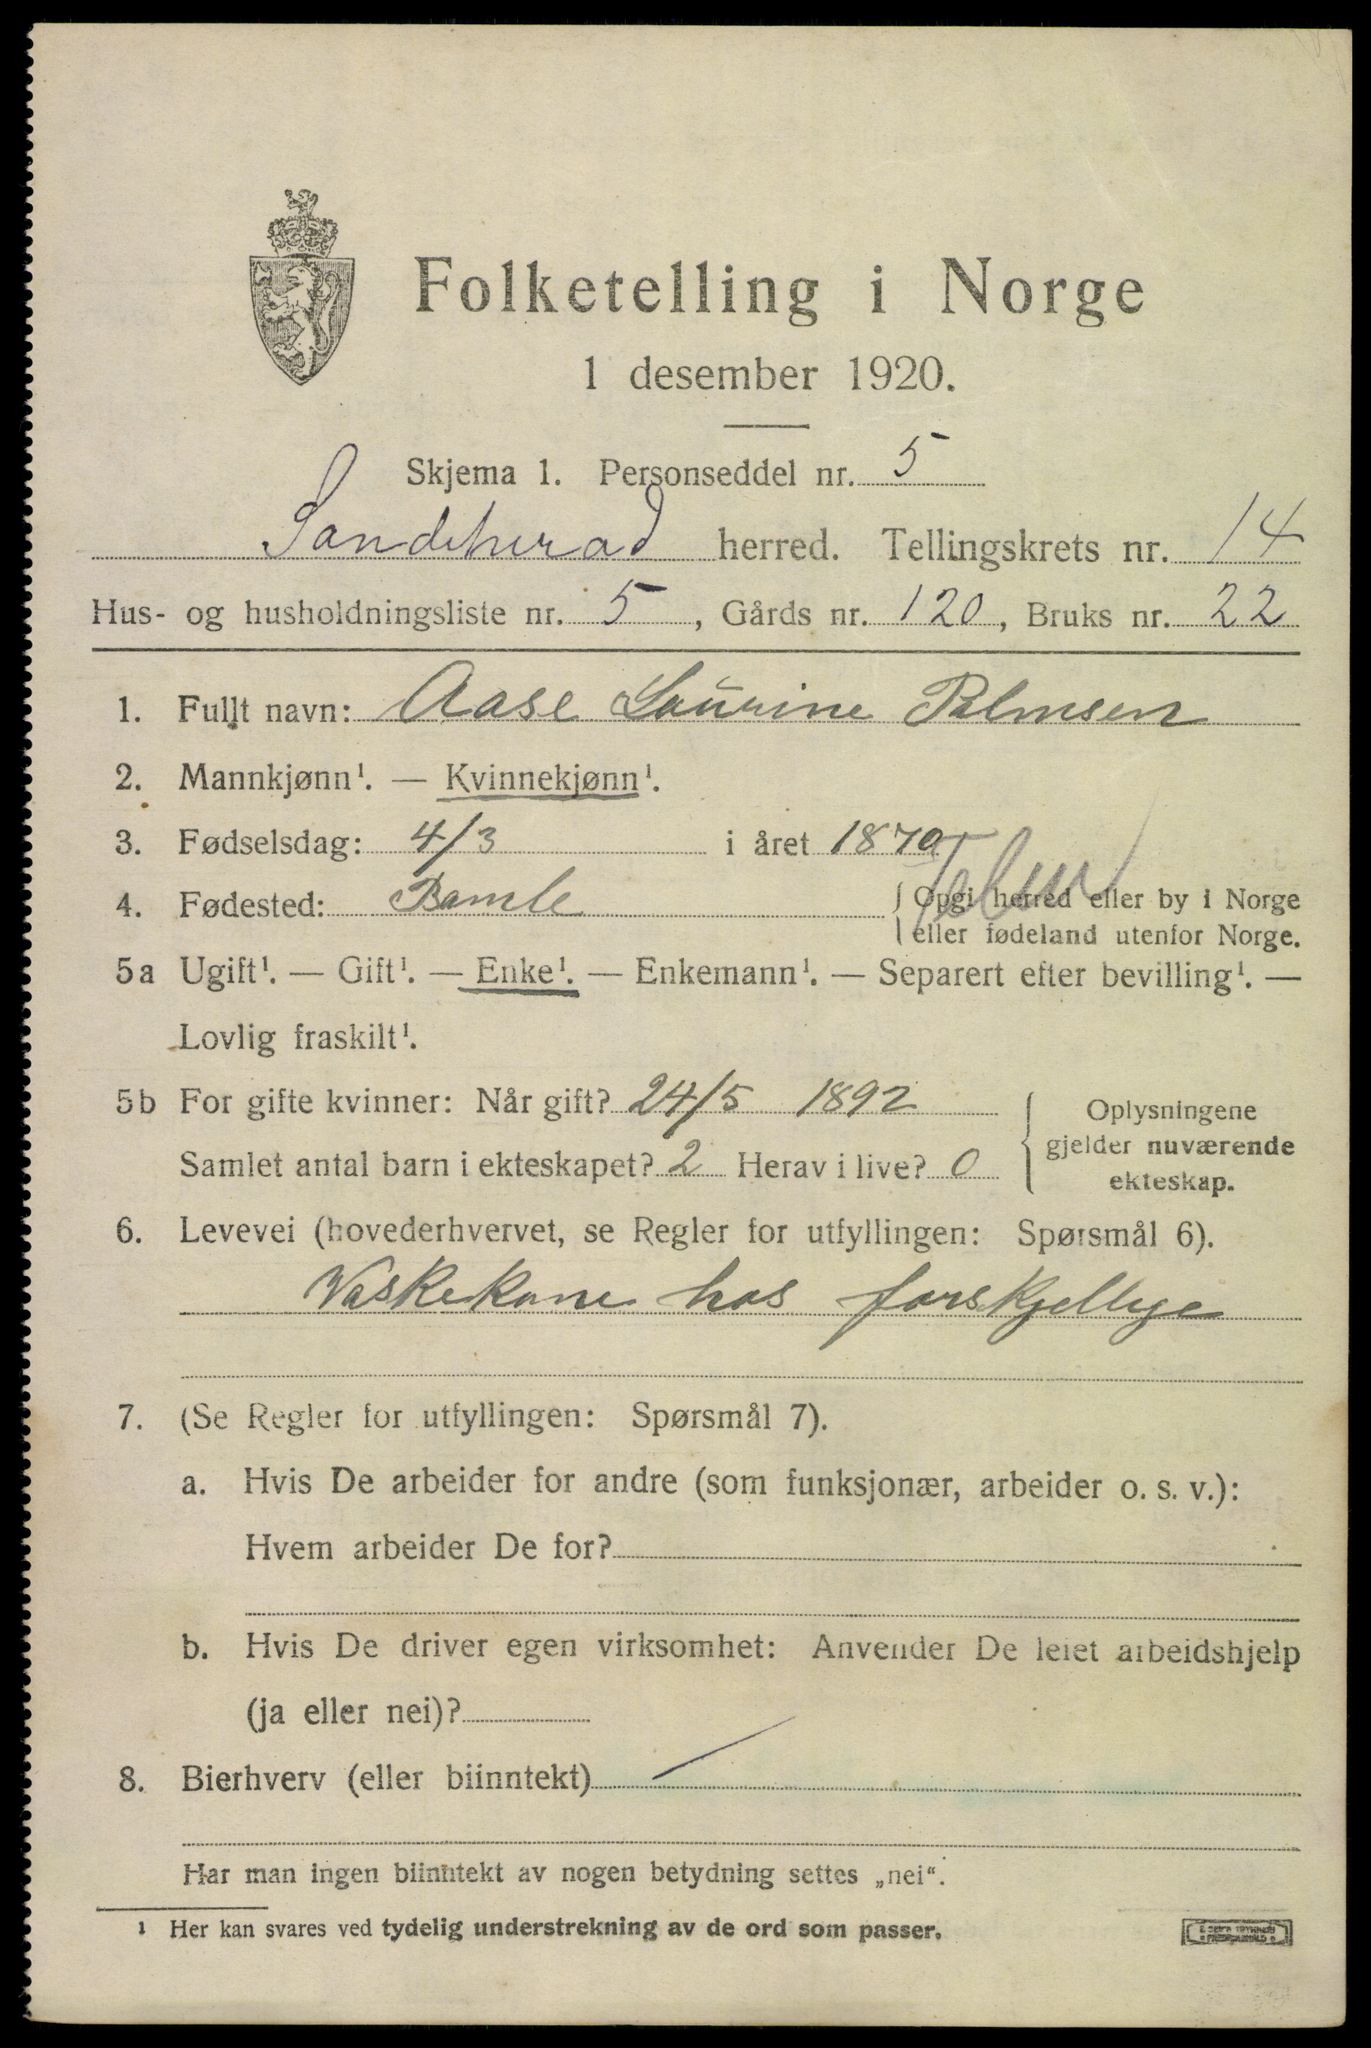 Folketelling i Norge
1 desember 1920.
Skjema 1. Personseddel nr. 5
Sandeherad herred. Tellingskrets nr. 14
Hus- og husholdningsliste nr. 5, Gårds nr. 120, Bruks nr. 22
1. Fullt navn: Aase Laurine Palmsen
2. Mannkjønn¹. — Kvinnekjønn¹.
3. Fødselsdag: 4/3 i året 1870
4. Fødested: Bamle Opgi herred eller by i Norge
eller fødeland utenfor Norge.
5a Ugift¹. — Gift¹. — Enke¹. — Enkemann¹. — Separert efter bevilling¹. —
Lovlig fraskilt¹.
5b For gifte kvinner: Når gift? 24/5 1892
Samlet antal barn i ekteskapet? 2 Herav i live? 0
Oplysningene
gjelder nuværende
ekteskap.
6. Levevei (hovederhvervet, se Regler for utfyllingen: Spørsmål 6).
Vaskekone hos forskjellige
7. (Se Regler for utfyllingen: Spørsmål 7).
a. Hvis De arbeider for andre (som funksjonær, arbeider o. s. v.):
Hvem arbeider De for?
b. Hvis De driver egen virksomhet: Anvender De leiet arbeidshjelp
(ja eller nei)?
8. Bierhverv (eller biinntekt) /
Har man ingen biinntekt av nogen betydning settes „nei“.
¹ Her kan svares ved tydelig understrekning av de ord som passer.